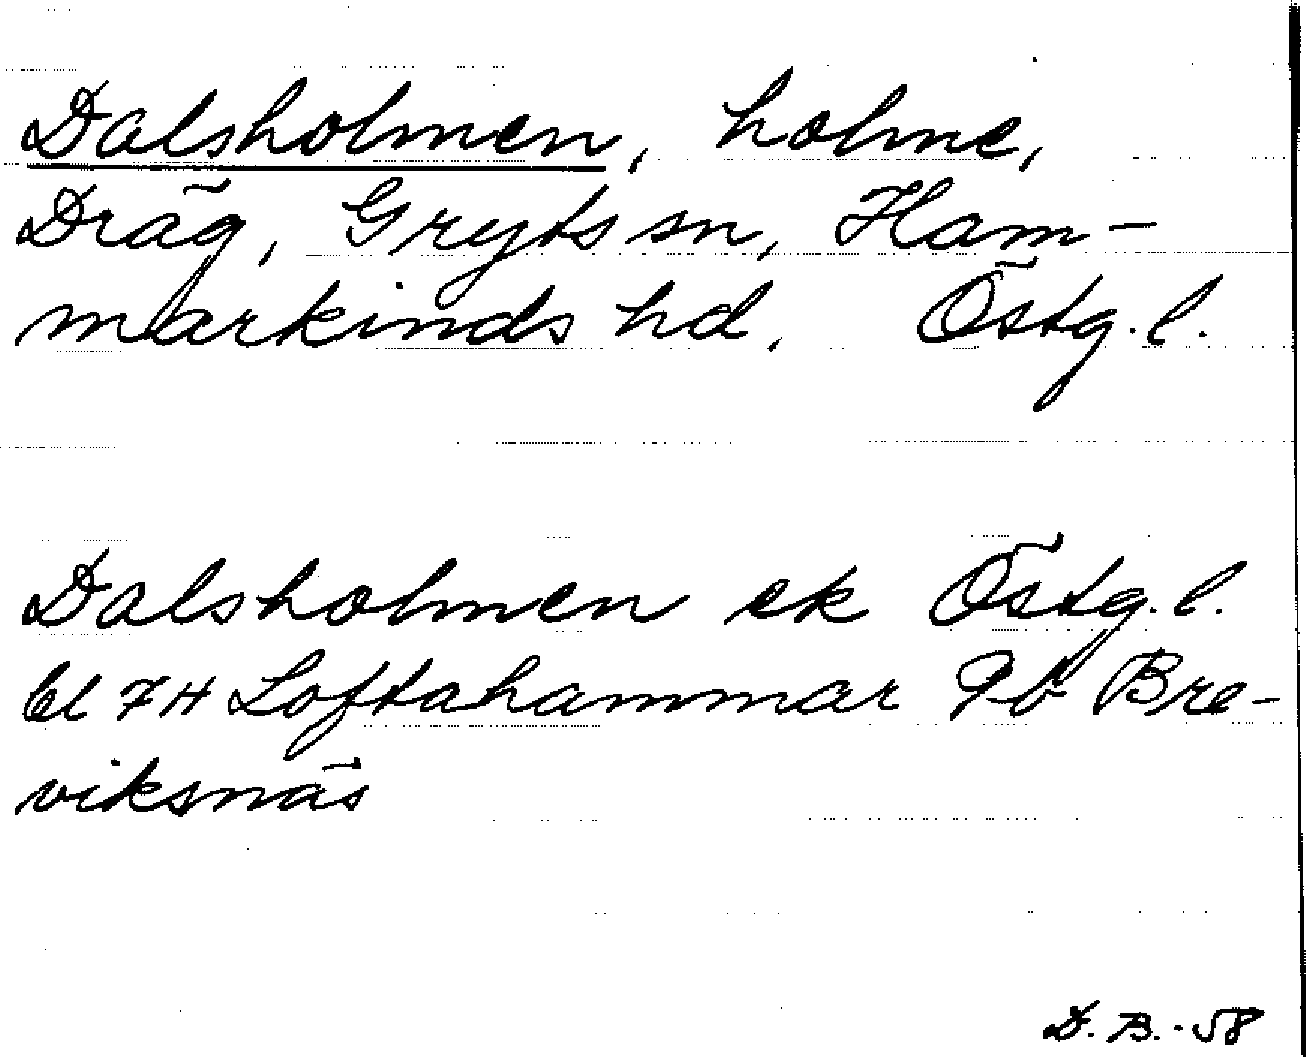 Dalsholmen, holme,
Dräg, Gryts sn, Ham-
markinds hd. Östg. l.
Dalsholmen ek Östg. l.
bl 7H Loftahammar 9b Bre-
viksnäs
D. B. -58